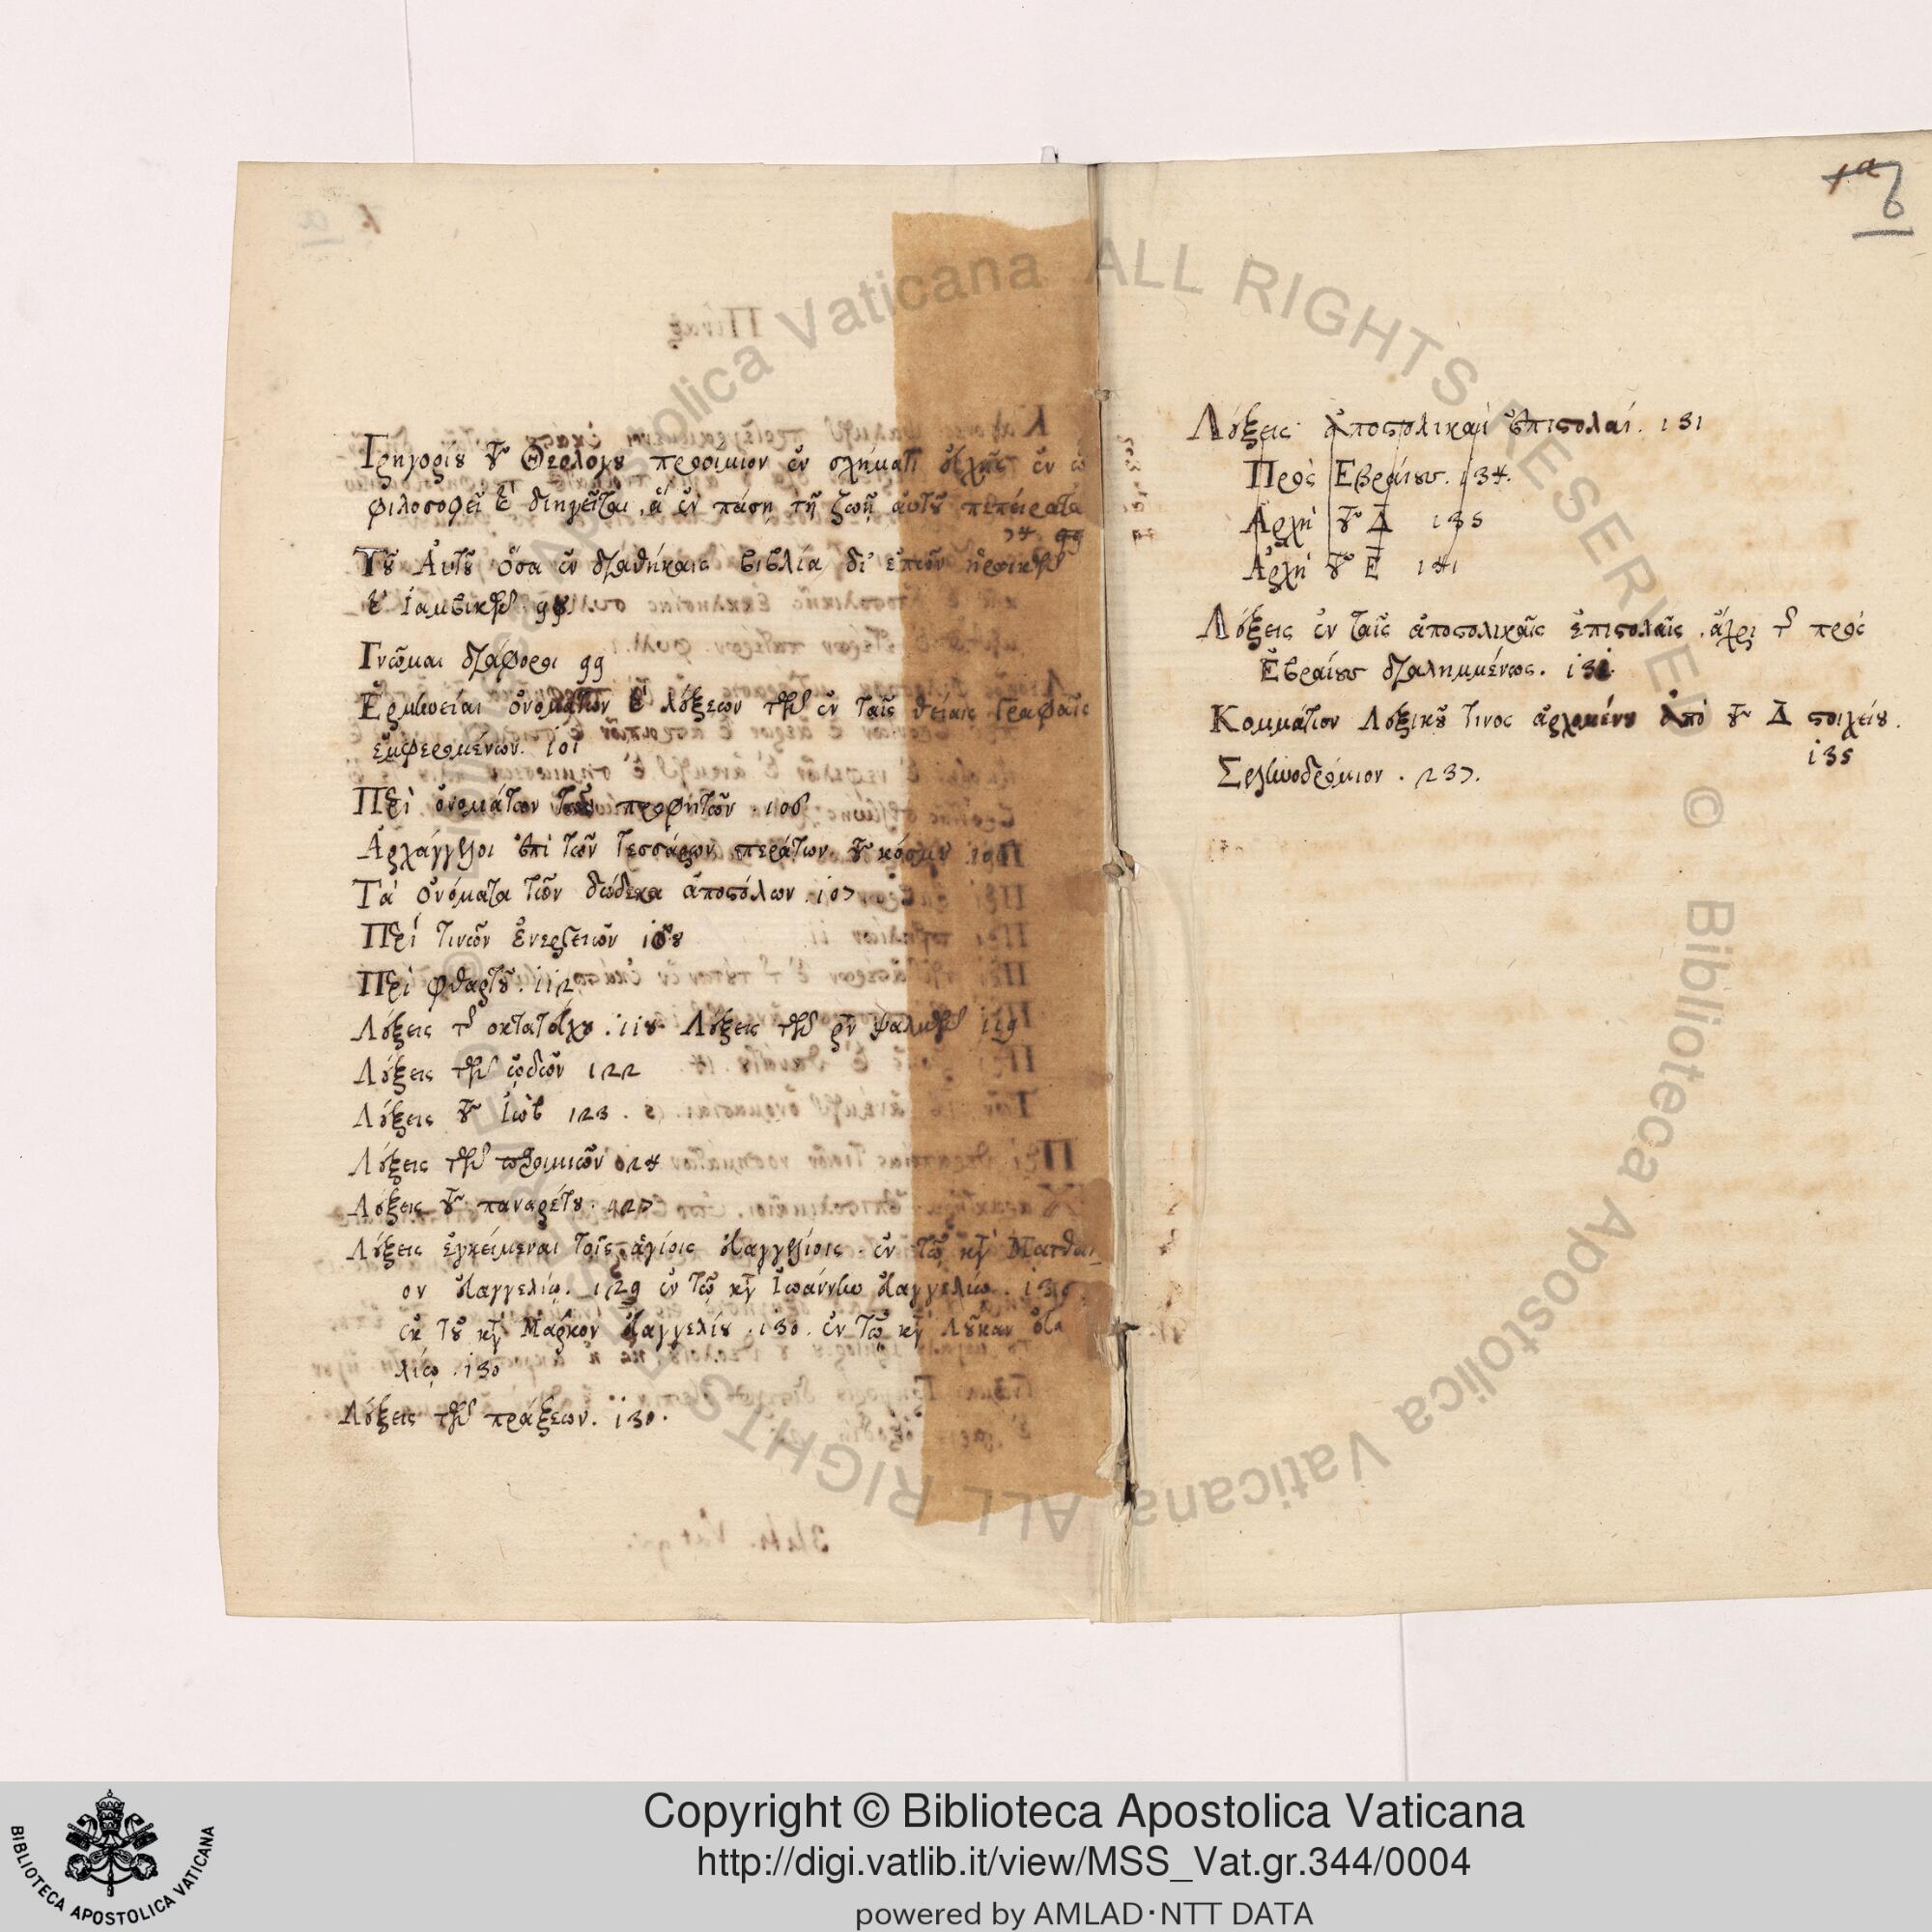 Γρηγορίου τοῦ Θεολόγου προοίμιον ἐν σχήματι εὐχῆς ἐν ᾧ
φιλοσοφεῖ καὶ διηγεῖται, ἃ ἐν πάσῃ τῇ ζωῇ αὐτοῦ πεπείραται
99
Τοῦ Αὐτοῦ ὅσα ἐν διαθήκαις βιβλία δι' ἐπῶν ἡρωικῶν
καὶ ἰαμβικῶν
Γνῶμαι διάφοροι 99
Ἑρμηνείαι ὀνομάτων καὶ λέξεων τῶν ἐν ταῖς θείαις Γραφαῖς
ἐμφερομένων. 101
Περὶ ὀνομάτων τῶν προφητῶν. 106
Ἀρχάγγελοι ἐπὶ τῶν τεσσάρων περάτων τοῦ κόσμου
Τὰ ὀνόματα τῶν δώδεκα ἀποστόλων. 107
Περὶ τινῶν ἐνεργειῶν 108
Περὶ φθαρτοῦ. 112
Λέξεις τῆς ὀκτατεύχου. 118. Λέξεις τῶν ρν ψαλμῶν 119
Λέξεις τῶν ᾠδῶν 122
Λέξεις τοῦ Ἰὼβ 123.
Λέξεις τῶν παροιμιῶν 124
Λέξεις τοῦ παναρέτου. 127
Λέξεις ἐγκείμεναι τοῖς ἁγίοις εὐαγγελίοις. ἐν τῷ κατὰ Ματθαῖ
ον εὐαγγελίῳ. 129 ἐν τῷ κατὰ Ἰωάννην εὐαγγελίῳ. 130
ἐκ τοῦ κατὰ Μάρκον εὐαγγελίου. 130. ἐν τῷ κατὰ Λουκᾶν εὐα
λίῳ. 130
Λέξεις τῶν πράξεων. 130.
1a
Λέξεις ἀποστολικαὶ ἐπιστολαί. 131
Πρὸς Εβραίους. 134.
Ἀρχὴ τοῦ Δ 135
Ἀρχὴ τοῦ Ε 141
Λέξεις ἐν ταῖς ἀποστολικαῖς ἐπιστολαῖς. ἄχρι τῆς πρὸς
Ἑβραίους διαλημμένως. 131.
Κομμάτιον Λεξικοῦ τινος ἀρχομένου ἀπὸ τοῦ Δ στοιχείου.
135
Σεληνοδρόμιον. 237.
ALL RIGHTS RESERVED © Biblioteca Apostolica Vaticana
BIBLIOTECA APOSTOLICA VATICANA
Copyright © Biblioteca Apostolica Vaticana
http://digi.vatlib.it/view/MSS_Vat.gr.344/0004
powered by AMLAD·NTT DATA